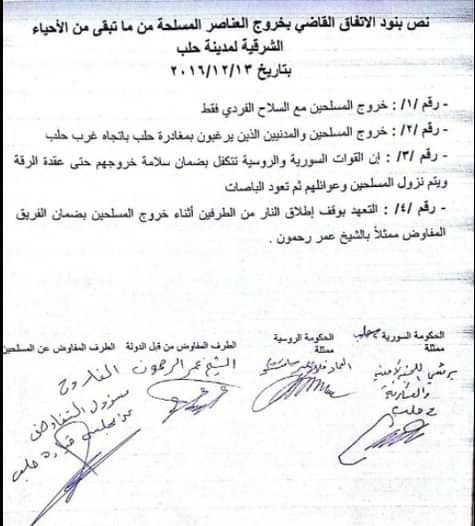 نص بنود الاتفاق القاضي بخروج العناصر المسلحة من ما تبقى من الأحياء
الشرقية لمدينة حلب
بتاريخ ٢٠١٦/١٢/١٣
- رقم /١/ : خروج المسلحين مع السلاح الفردي فقط
- رقم /٢/ : خروج المسلحين والمدنيين الذين يرغبون بمغادرة حلب باتجاه غرب حلب
- رقم /٣/ : إن القوات السورية والروسية تتكفل بضمان سلامة خروجهم حتى عقدة الرقة
ويتم نزول المسلحين وعوائلهم ثم تعود الباصات
- رقم /٤/ : التعهد بوقف إطلاق النار من الطرفين أثناء خروج المسلحين بضمان الفريق
المفاوض ممثلاً بالشيخ عمر رحمون .
الحكومة السورية بحلب
ممثلة
الحكومة الروسية
ممثلة
الطرف المفاوض من قبل الدولة
الشيخ عمر الرحمون
الطرف المفاوض عن المسلحين
الفاروق
مسؤول التفاوض
عن مجلس قيادة حلب